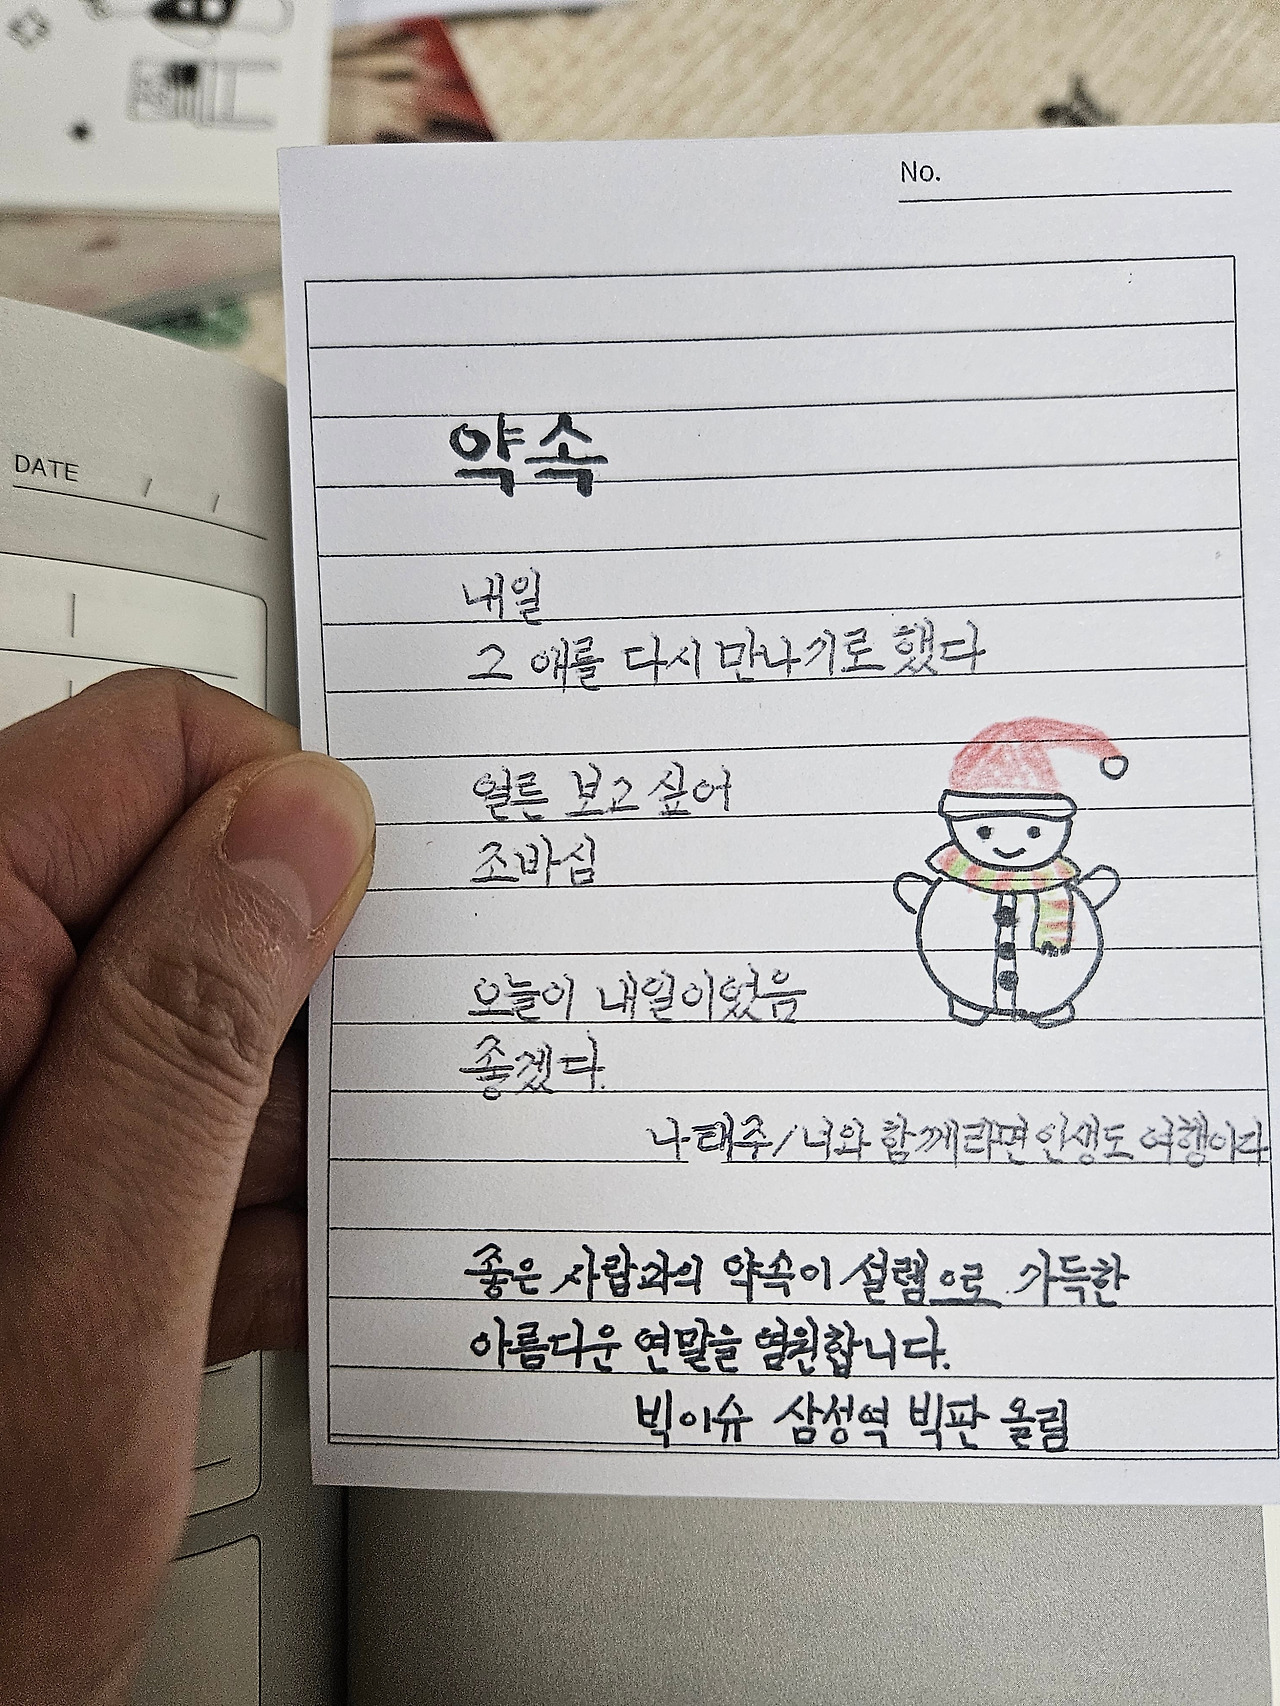 No.
DATE / /
약속
내일
그 애를 다시 만나기로 했다
얼른 보고 싶어
조바심
오늘이 내일이었음
좋겠다.
나태주/너와 함께라면 인생도 여행이다
좋은 사람과의 약속이 설렘으로 가득한
아름다운 연말을 열원합니다.
빅이슈 삼성역 빅판 올림